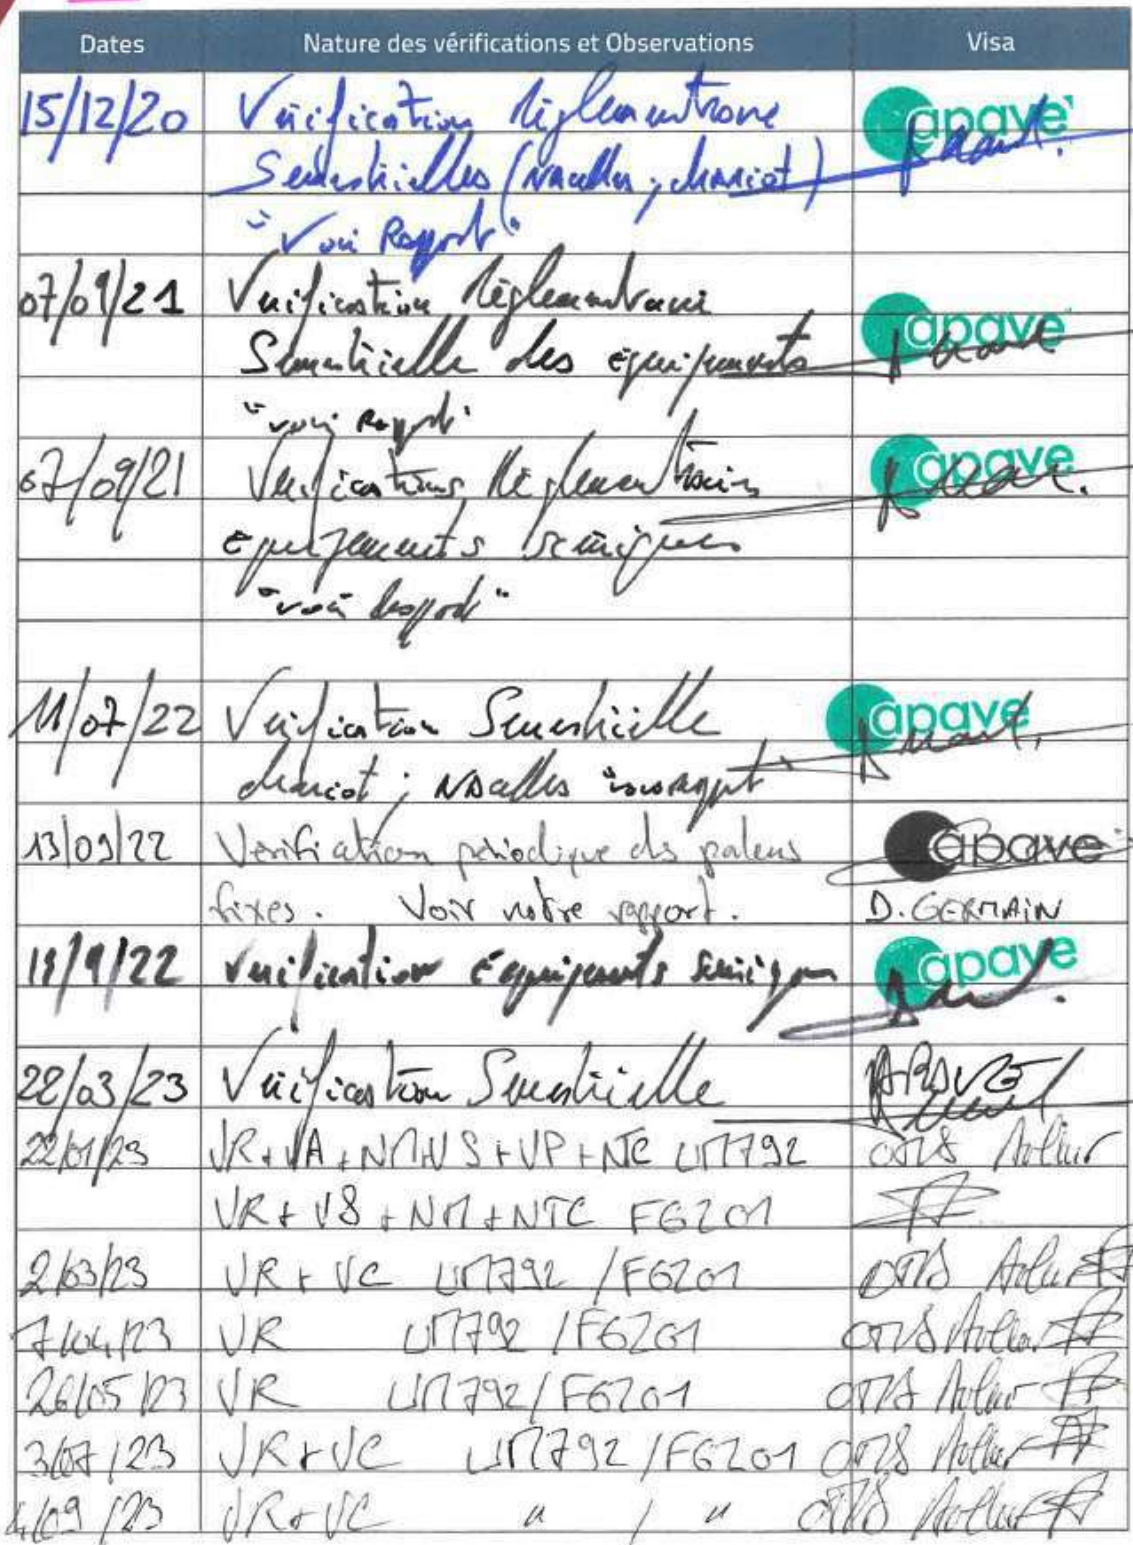 Dates Nature des vérifications et Observations Visa
15/12/20 Vérification réglementaire apave
Semestrielles (Nacelles ; chariot)
"Voir Rapport"
07/09/21 Vérification réglementaire
Semestrielle des équipements apave
"voir Rapport"
07/09/21 Vérifications Réglementaires apave
équipements scéniques
"voir Rapport"
11/07/22 Vérification Semestrielle apave
chariot ; Nacelles "voir rapport"
13/09/22 Vérification périodique des palans apave
fixes. Voir notre rapport. D. GERMAIN
/9/22 Vérification Equipements Scéniques apave
22/03/23 Vérification Semestrielle APAVE
22/01/23 VR+VA+NM+VS+VP+NTC UM792 OTIS
VR+VS+NM+NTC FG201
2/03/23 VR+VC UM792 /FG201 OTIS
7/04/23 VR UM792 /FG201 OTIS
26/05/23 VR UM792/FG201 OTIS
3/07/23 VR+VC UM792 /FG201 OTIS
/09/23 VR+VC " / " OTIS